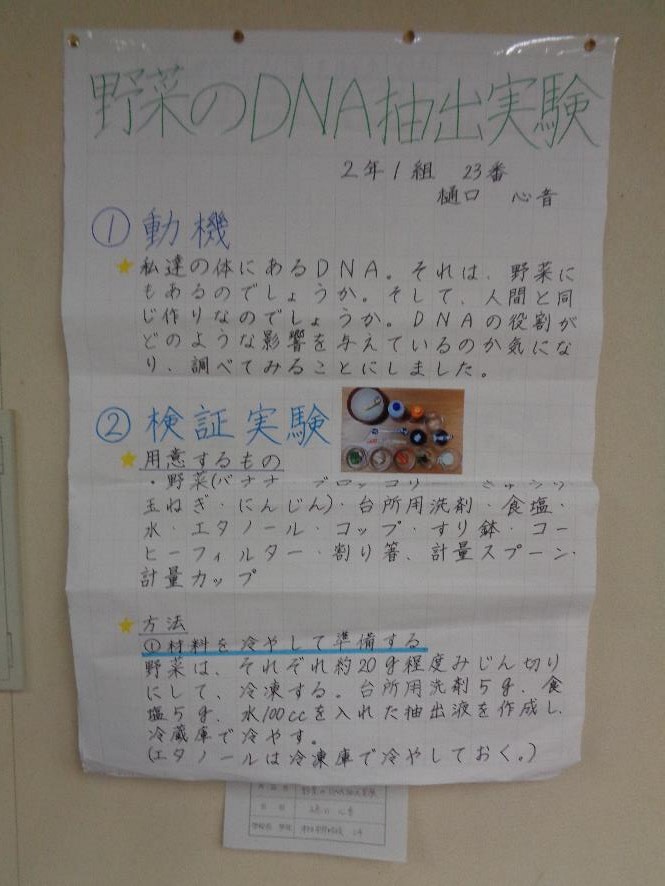 野菜のDNA抽出実験
2年1組 23番
樋口 心音
① 動機
★私達の体にあるDNA。それは、野菜に
もあるのでしょうか。そして、人間と同
じ作りなのでしょうか。DNAの役割が
どのような影響を与えているのか気にな
り、調べてみることにしました。
② 検証実験
★用意するもの
・野菜(バナナ ブロッコリー
玉ねぎ・にんじん)・台所用洗剤・食塩・
水・エタノール・コップ・すり鉢・コー
ヒーフィルター・割り箸、計量スプーン・
計量カップ
★方法
①材料を冷やして準備する
野菜は、それぞれ約20g程度みじん切り
にして、冷凍する。台所用洗剤5g、食
塩5g、水100ccを入れた抽出液を作成し、
冷蔵庫で冷やす。
(エタノールは冷凍庫で冷やしておく。)
野菜のDNA抽出実験